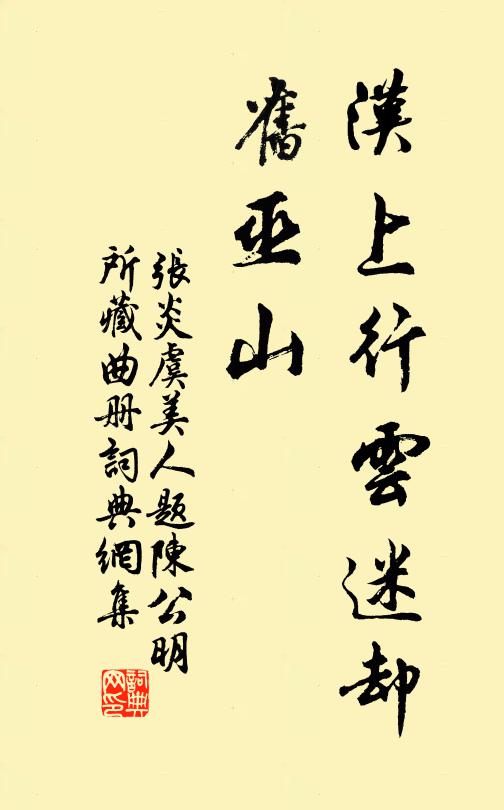 漢上行雲迷却
舊巫山
張炎虞美人題陳公明
所藏曲册詞典網集
詞典网印